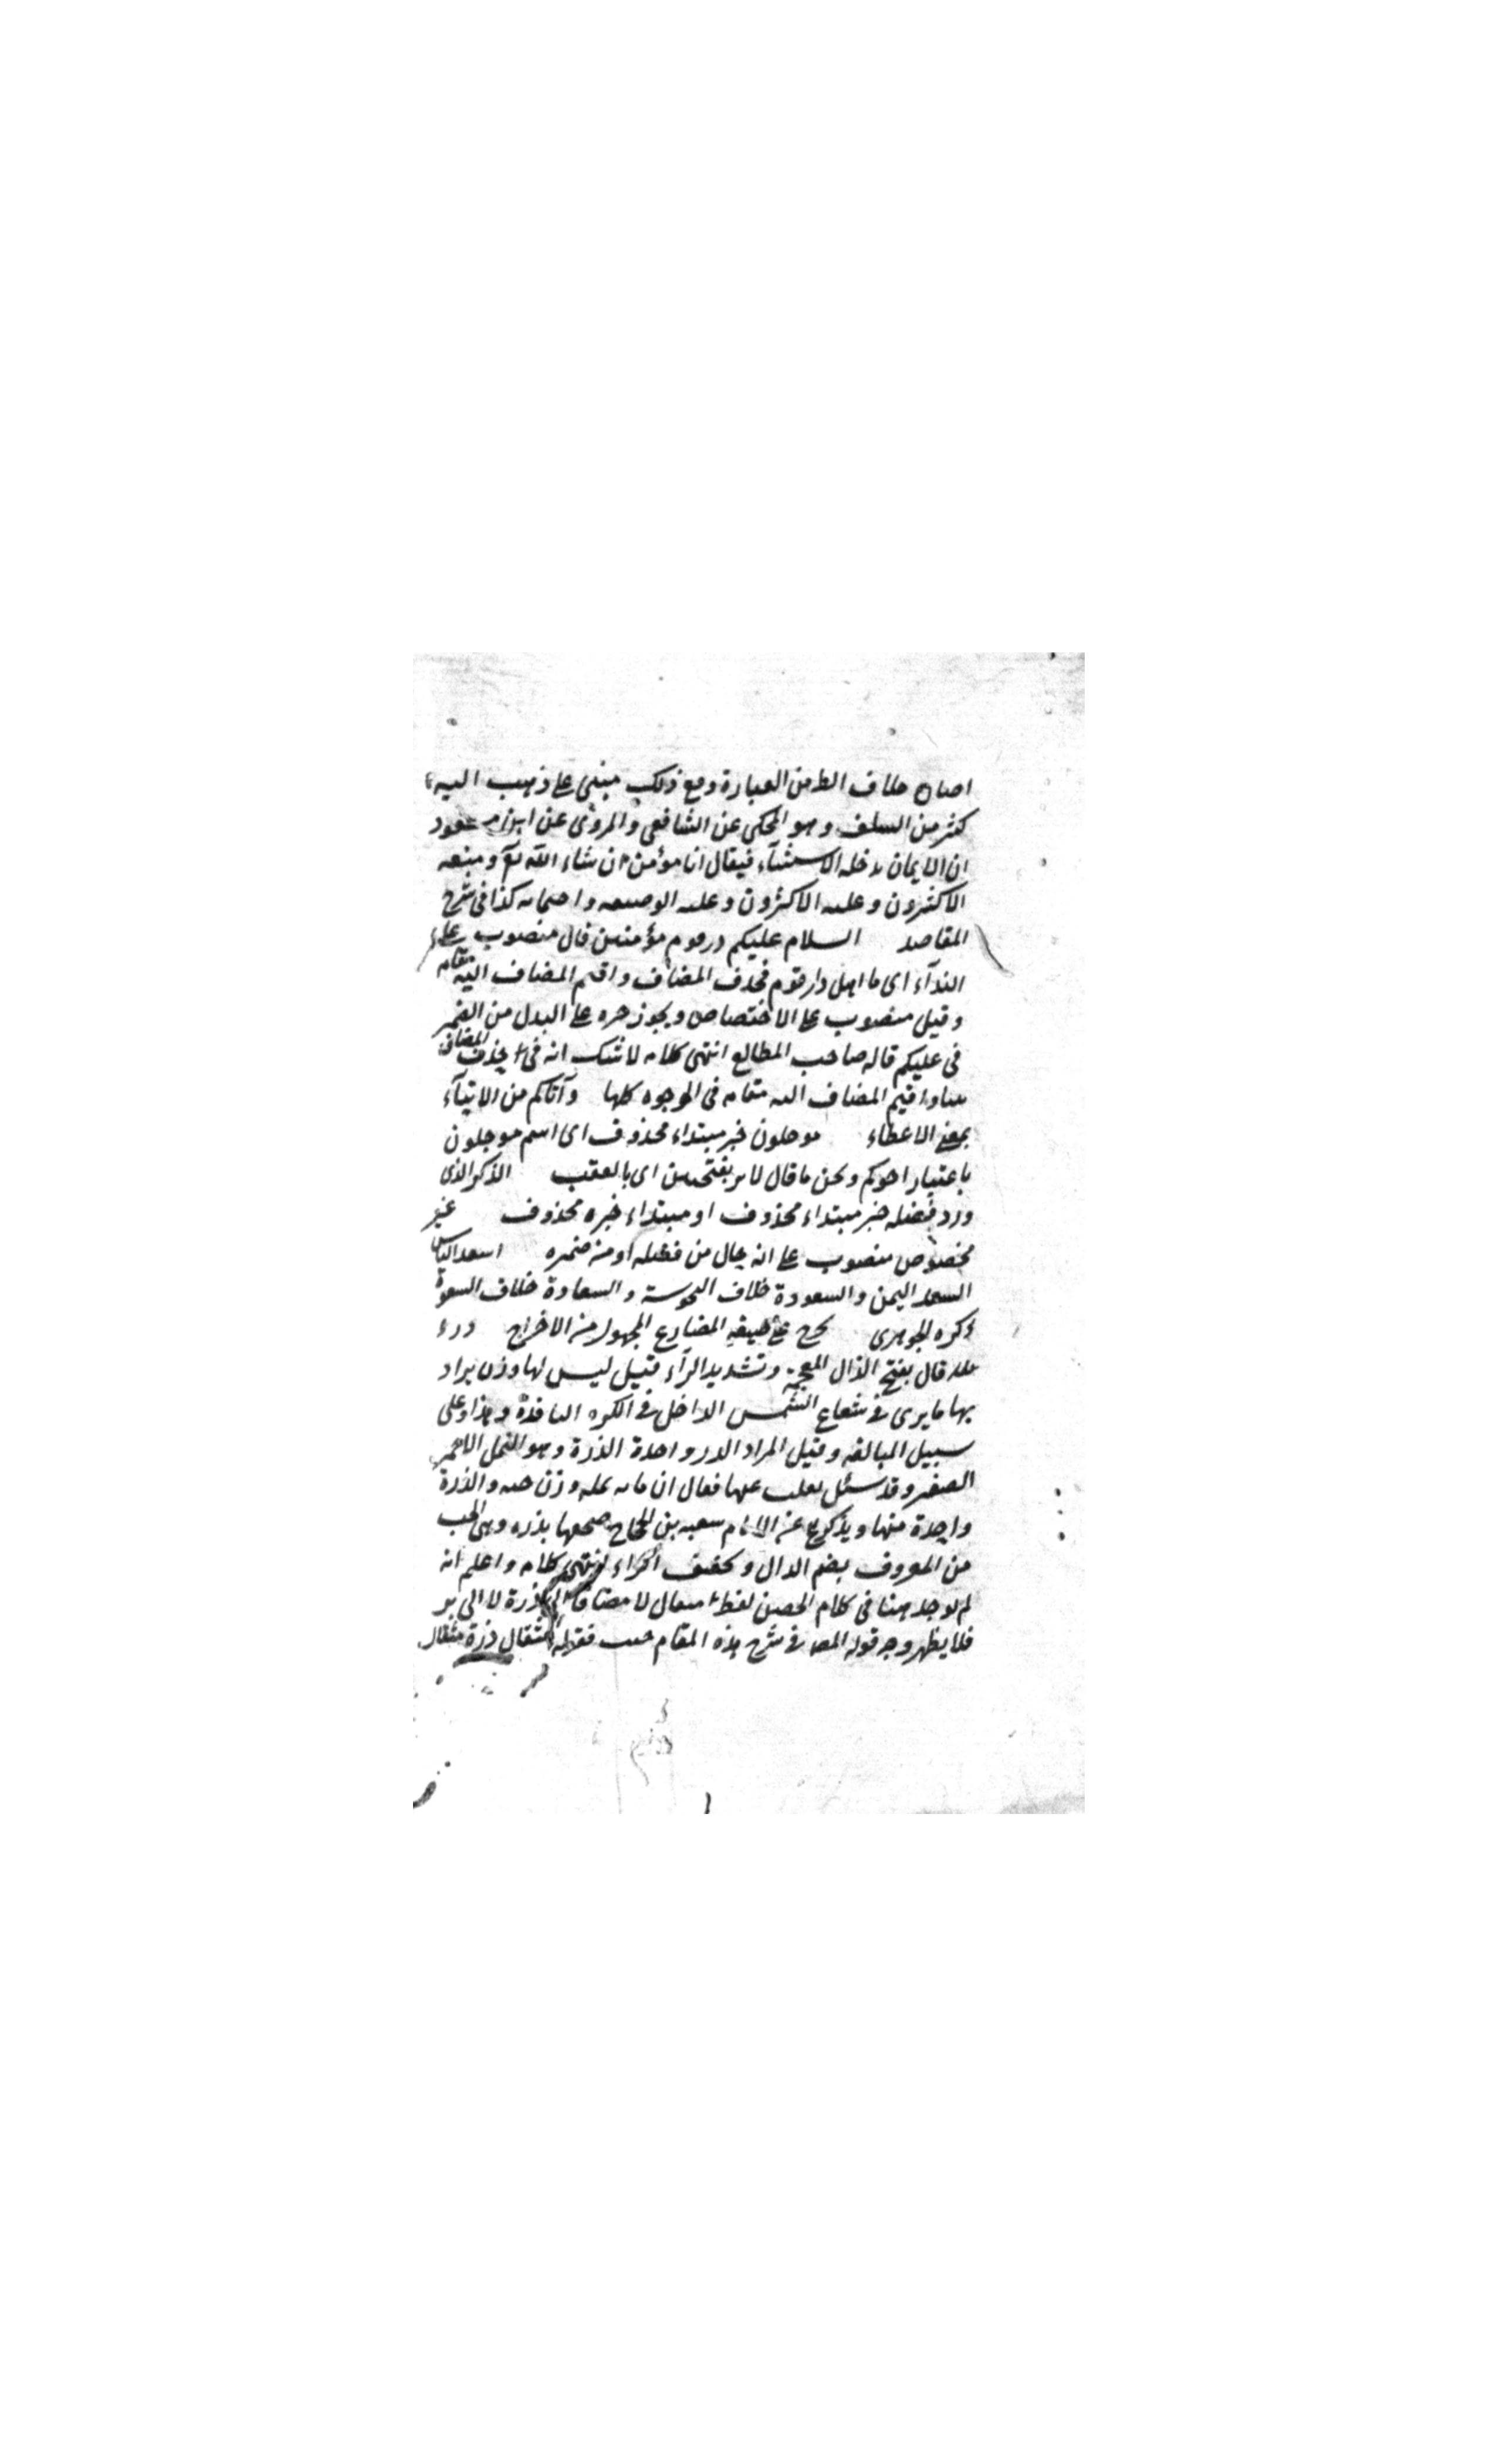 خلاف الظ من العبارة ومع ذلك مبنى على ذهب اليه
كثير من السلف وهو المحكى عن الشافعى والمروى عن ابن مسعود
ان الايمان يدخله الاستثناء فيقال انا مؤمن ان شاء الله تع ومنعه
الاكثرون وعليه الاكثرون وعليه ابوحنيفه واصحابه كذا فى شرح
المقاصد السلام عليكم دار قوم مؤمنين قال منصوب على
الندآء اى يا اهل دار قوم فحذف المضاف واقيم المضاف اليه مقامه
وقيل منصوب على الاختصاص ويجوز جره على البدل من الضمير
فى عليكم قاله صاحب المطالع انتهى كلامه لا شك انه يحذف المضاف
واقيم المضاف اليه مقامه فى الوجوه كلها وآتاكم من الايتآء
بمعنى الاعطاء موجلون خبر مبتداء محذوف اى انتم موجلون
باعتبار اموركم ونحن ما قال لاثر بفتحتين اى بالعقب الذكر الذى
ورد فضله خبر مبتداء محذوف او مبتداء خبره محذوف غير
مخصوص منصوب على انه حال من فضله او من ضميره اسعد الناس
السعد اليمن والسعودة خلاف النحوسة والسعادة خلاف الشقوة
ذكره الجوهرى يخرج على صيغة المضارع المجهول من الاخراج ذرة
قال بفتح الذال المعجمة وتشديد الرآء قيل ليس لها وزن يراد
بها ما يرى فى شعاع الشمس الداخل فى الكوه النافذة وهذا على
سبيل المبالغه وقيل المراد الذر واحدة الذرة وهو النمل الاحمر
الصغير وقد سئل ثعلب عنها فقال ان مايه نمله وزن حبه والذرة
واحدة منها ويذكر عن الامام شعبه بن الحجاج صحفها بذره وهى الحب
من المعروف بضم الذال وتخفيف الراء انتهى كلامه واعلم انه
لم يوجد هنا فى كلام الحصن لفظ مثقال لا مضافا الى ذرة لا الى بر
فلا يظهر وجه قوله المص فى شرح هذه المقام حيث فقوله مثقال ذرة مثقال